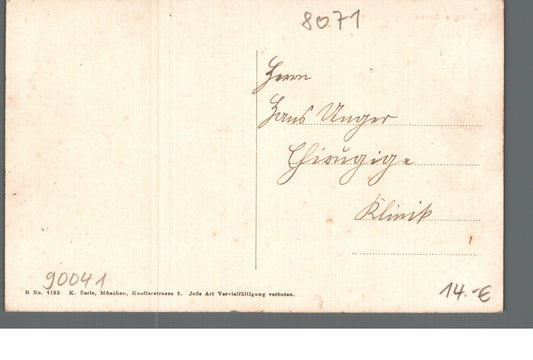 8071
Herrn
Hans Unger
Chirugige
Klinik
90041
R No. 4193. K. Zerle, München, Knollerstrasse 3. Jede Art Vervielfältigung verboten.
14.-€